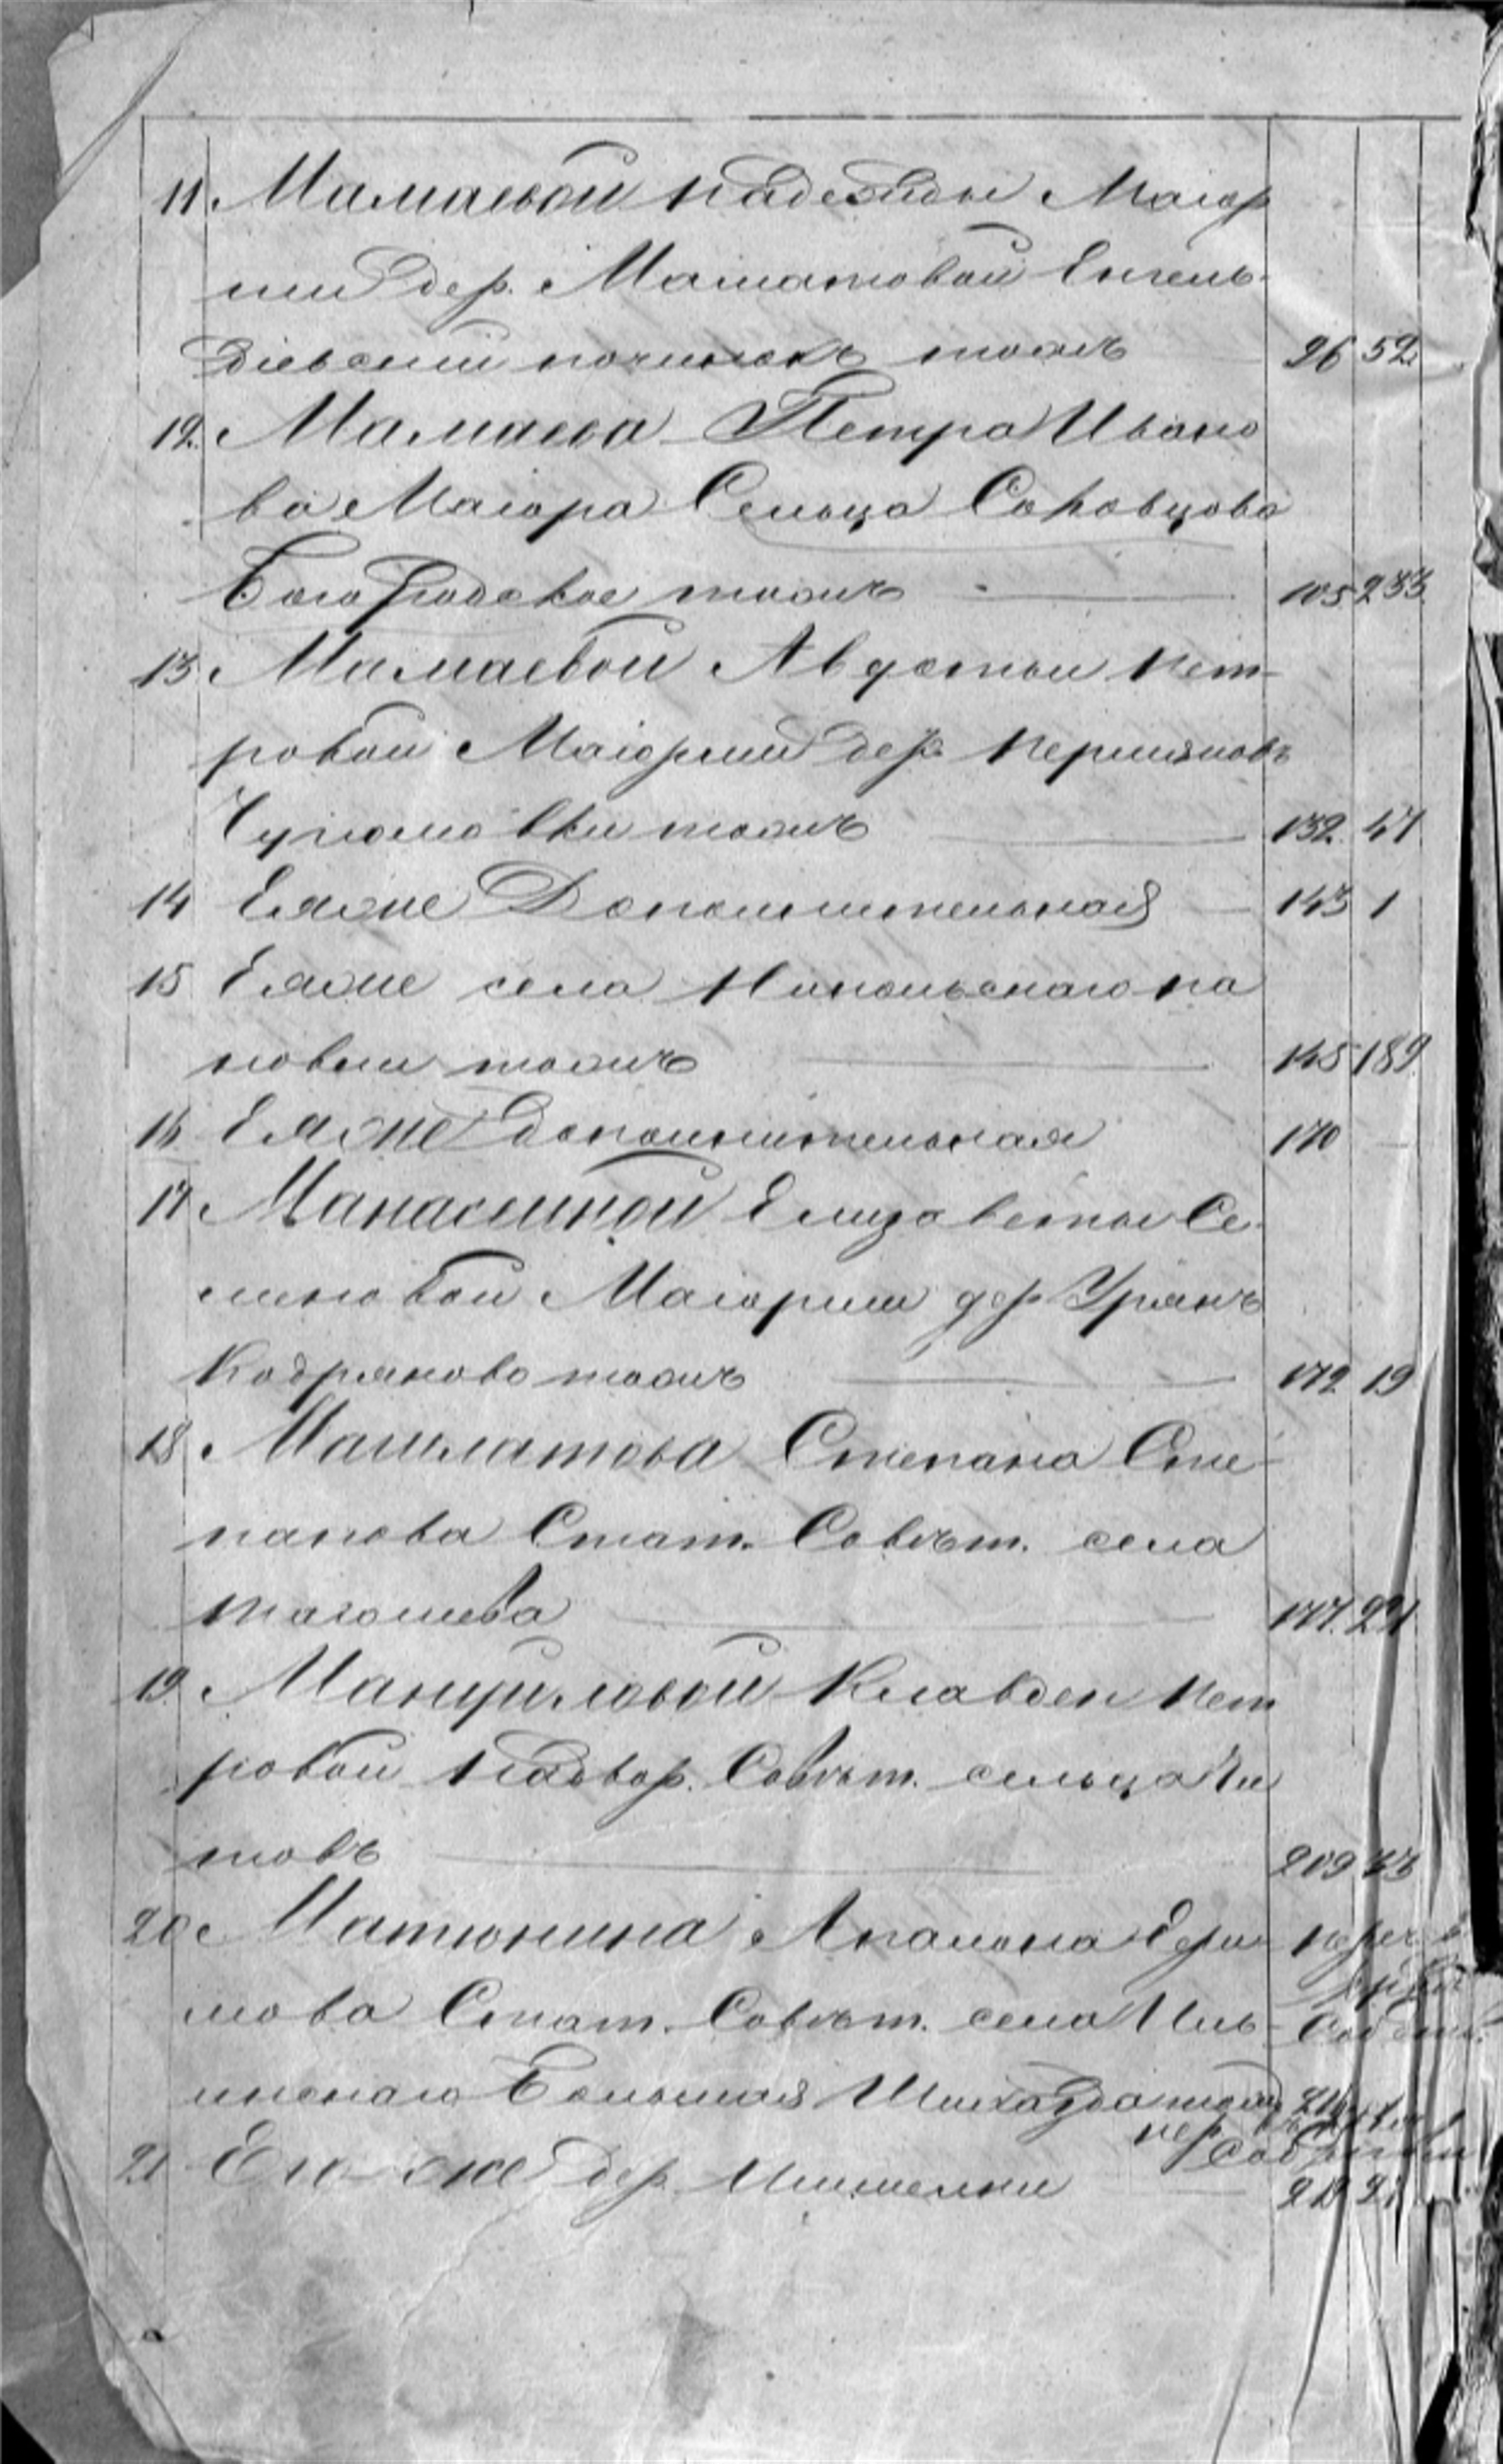 11. Мамаевой Надежды Маіор
ши дер. Маматовой Енгель-
діевскій починокъ тожъ 96 52
12. Мамаева Петра Ивано
ва Маіора Сельца Соковцова
Богородское тожъ 105 233
13. Мамаевой Авдотьи Пет-
ровой Маіорши дер.
тожъ 132. 47
14 Еяже Дополнительная 143 1
15 Еяже села Никольскаго на
новыи тожъ 145 189
16 Еяже дополнительная 170
17. Манасеиной Елизаветы Се-
меновой Маіорши дер. Урянъ
Кодряково тожъ 172 19
18. Машматова Степана Сте-
панова Стат. Совѣт. села
177. 
19. Клавдеи Пет
ровой Надвор. Совѣт. сельца Ти
товъ 209
20. Матюнина Апалона Ефи-
мова Стат. Совѣт. села Иль-
инскаго Большая тожъ
21 Его-же дер. Мишелки